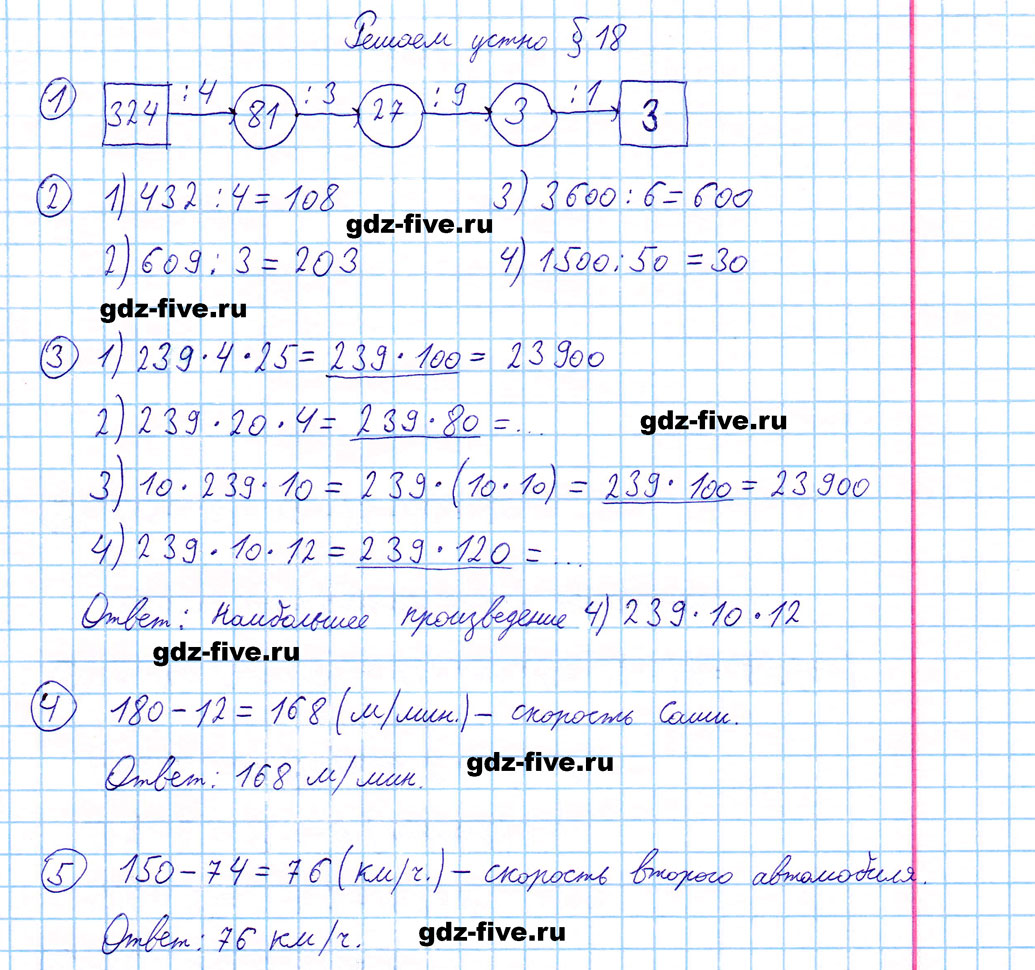 Решаем устно § 18
1 324 :4 81 :3 27 :9 3 :1 3
2 1) 432 : 4 = 108 3) 3600 : 6 = 600
gdz-five.ru
2) 609 : 3 = 203 4) 1500 : 50 = 30
gdz-five.ru
3 1) 239 · 4 · 25 = 239 · 100 = 23900
2) 239 · 20 · 4 = 239 · 80 = ...
gdz-five.ru
3) 10 · 239 · 10 = 239 · (10 · 10) = 239 · 100 = 23900
4) 239 · 10 · 12 = 239 · 120 = ...
Ответ: Наибольшее произведение 4) 239 · 10 · 12
gdz-five.ru
4 180 - 12 = 168 (м/мин.) - скорость Саши.
gdz-five.ru
Ответ: 168 м/мин.
5 150 - 74 = 76 (км/ч.) - скорость второго автомобиля.
Ответ: 76 км/ч.
gdz-five.ru